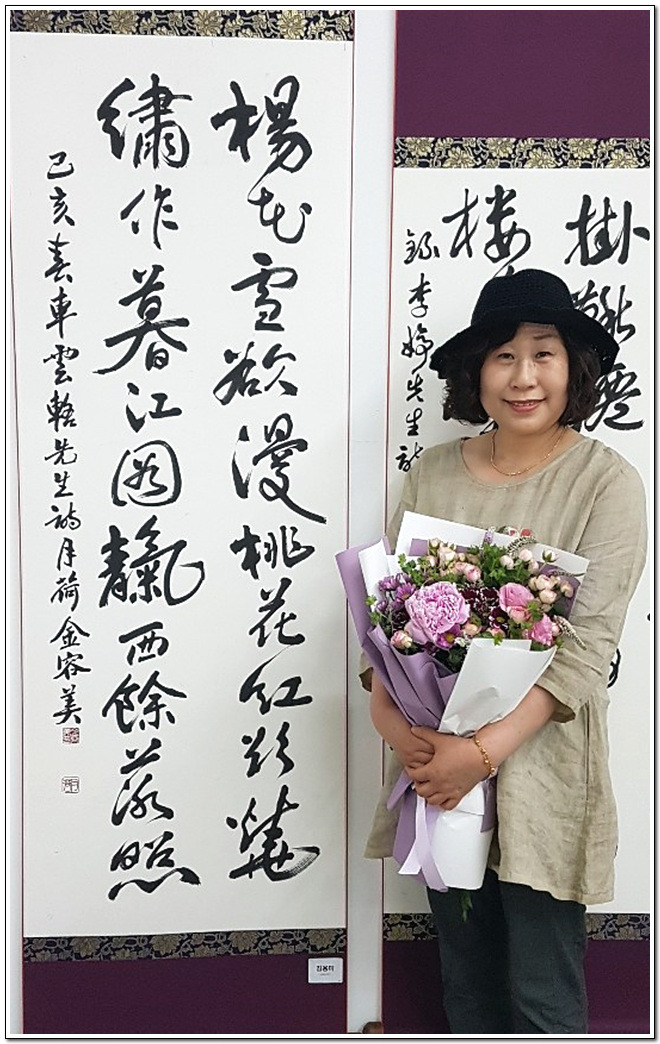 楊花雪欲漫桃花紅欲燒
繡作暮江圖靝西餘落照
己亥春車雲輅先生詩月荷金容美
김용미
掛
楼
錄李婷先生詩